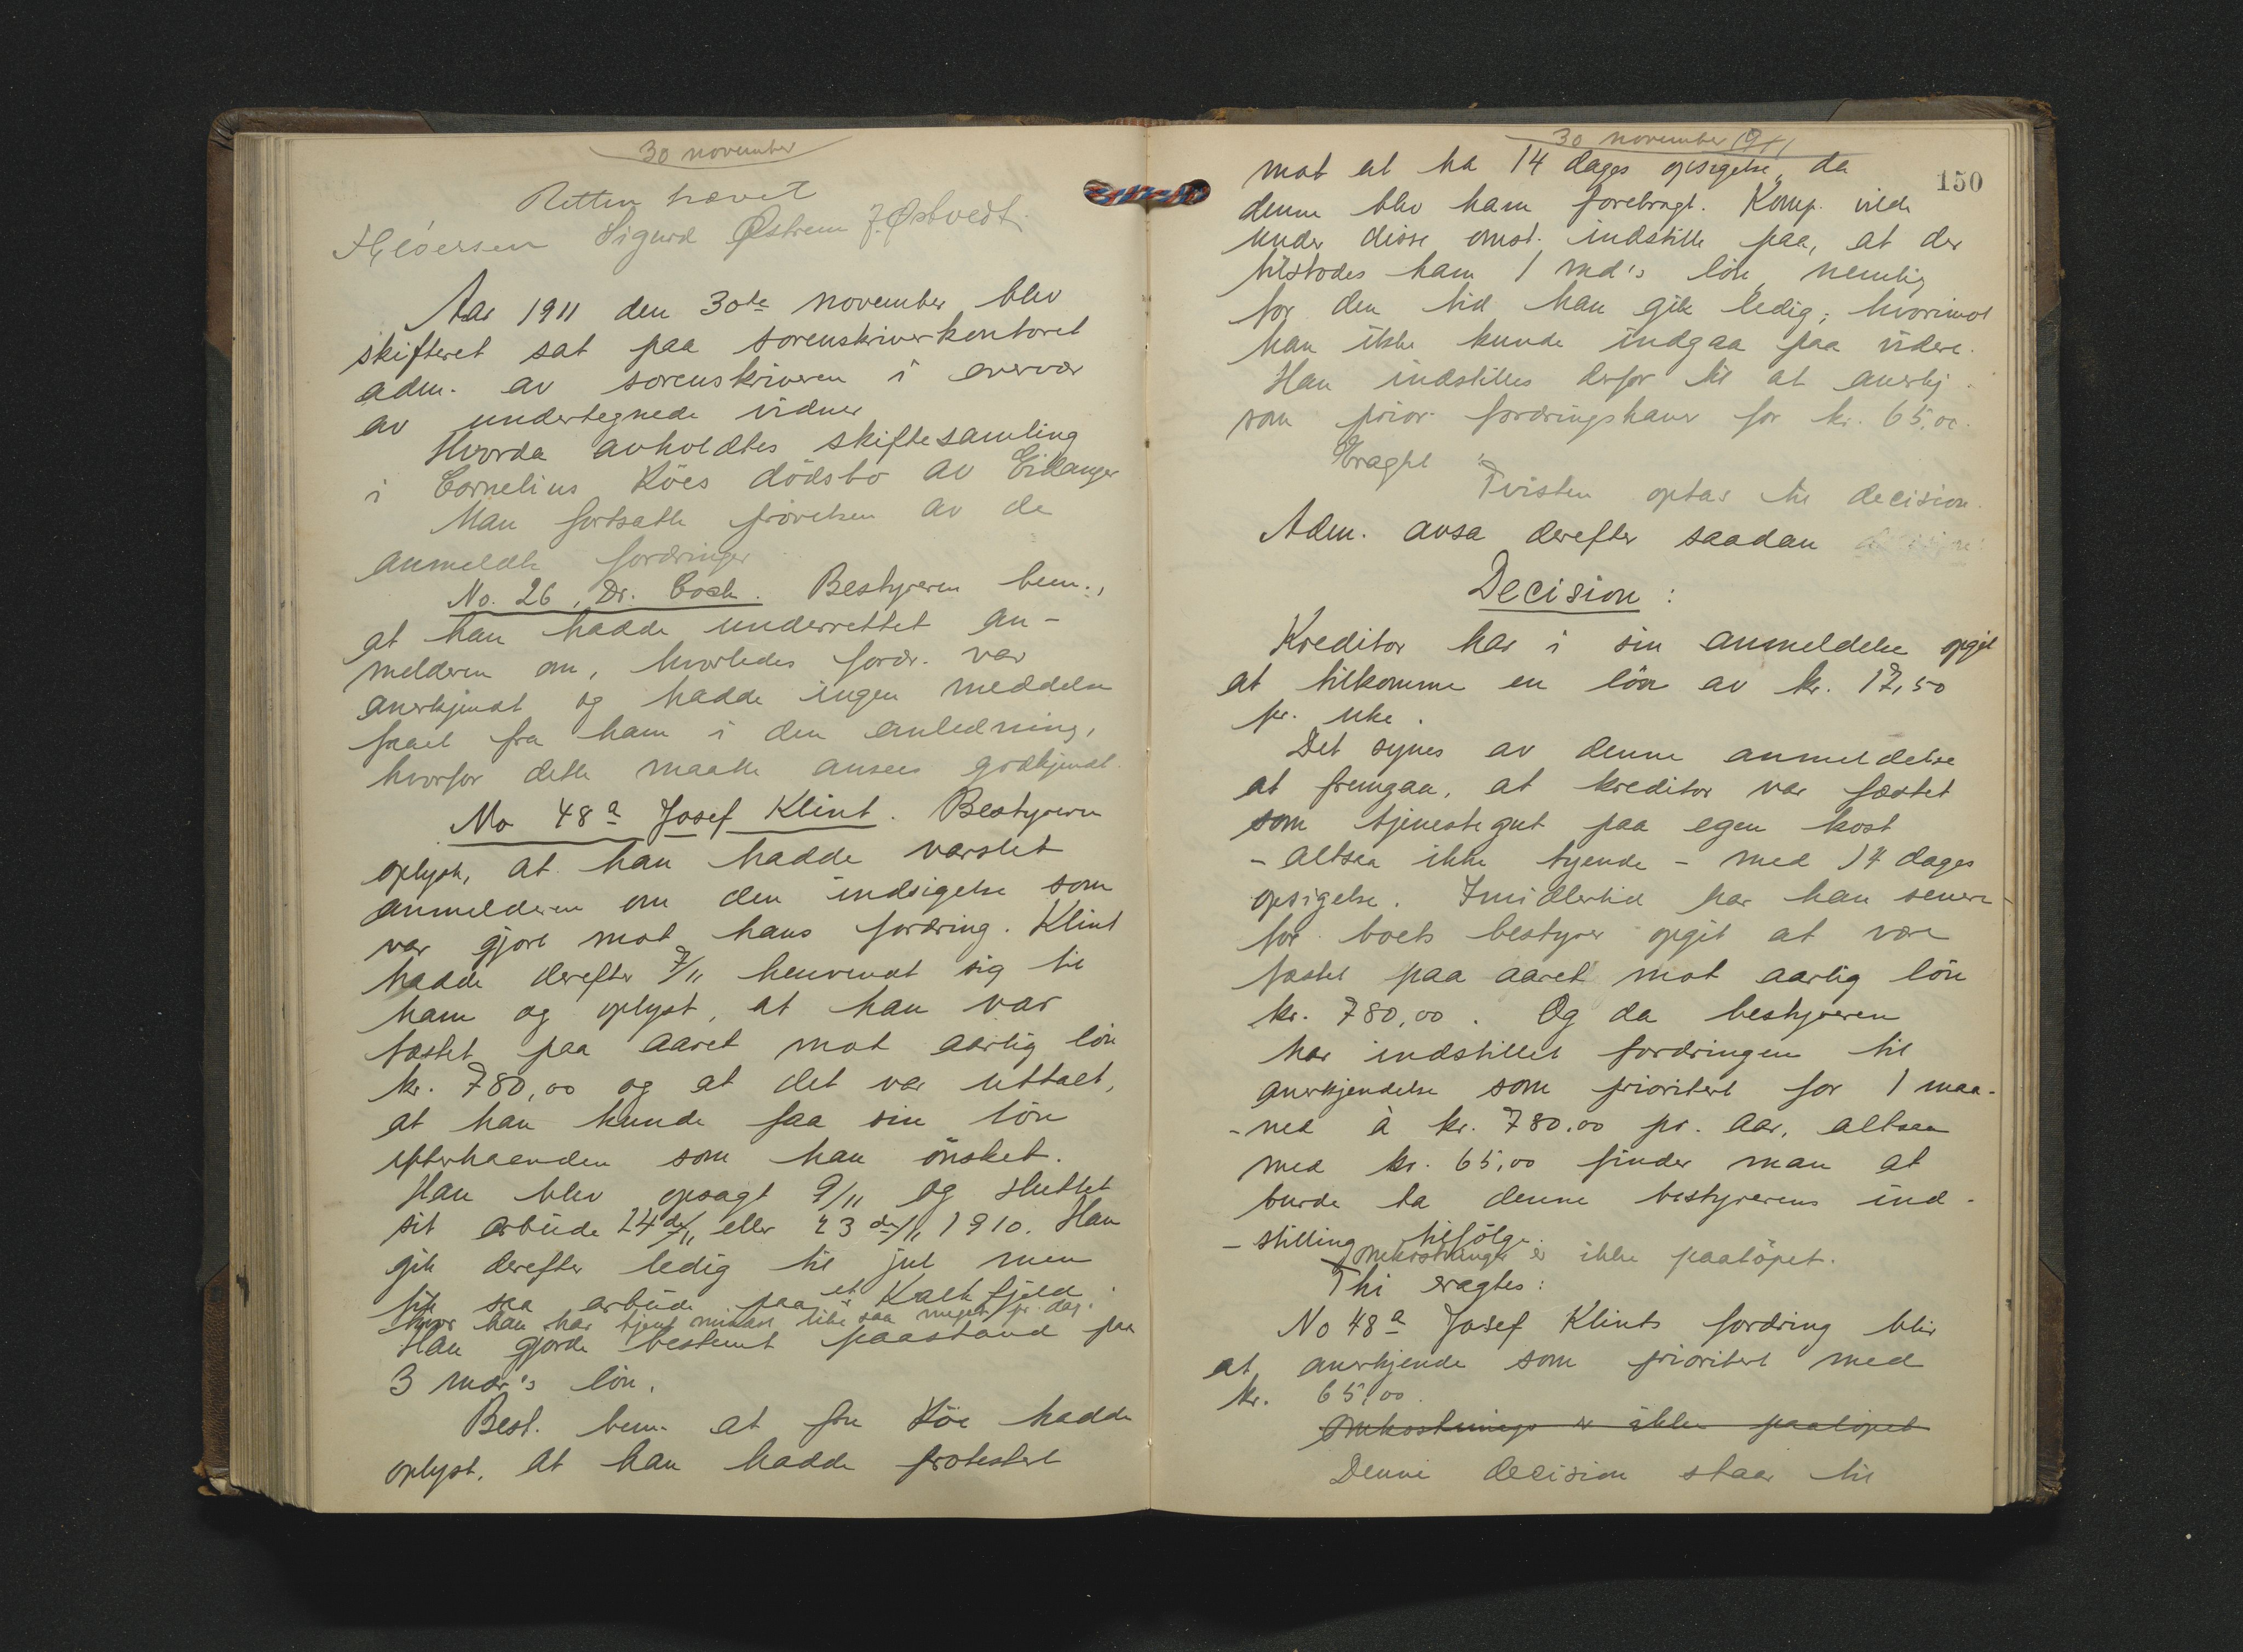 30 november
Retten hævet
Sigurd Østrem J. Østvedt
Aar 1911 den 30te november blev
skifteret sat paa sorenskriverkontoret
adm. av sorenskriveren i overvær
av undertegnede vidner
Hvorda avholdtes skiftesamling
i Cornelius Köes dödsbo av Eidanger
Man fortsatte prövelsen av de
anmeldte fordringer
No. 26, Dr. Bestyreren bem.,
at han hadde underrettet an-
melderen om, hvorledes fordr. var
anerkjendt og hadde ingen meddelse
faaet fra ham i den anledning,
hvorfor dette maatte ansees godkjendt.
No 48a Josef Klint. Bestyreren
oplyste, at han hadde varslet
anmelderen om den indsigelse som
var gjort mot hans fordring. Klint
hadde derefter 7/11 henvendt sig til
ham og oplyst, at han var
fæstet paa aaret mot aarlig lön
kr. 780,00 og at det var uttalt,
at han kunde faa sin lön
efterhaanden som han önsket.
Han blev opsagt 9/11 og sluttet
sit arbeide 24de/11 eller 23de/11 1910. Han
gik derefter ledig til jul men
fik saa arbeide paa et Kalkfjeld
hvor han har tjent mindst like saa meget pr. dag.
Han gjorde bestemt paastand paa
3 mdr's lön.
Best. bem. at fru Köe hadde
oplyst, at han hadde protestert
30 november 1911
150
mot at ha 14 dages opsigelse, da
denne blev ham forebragt. Komp. vilde
under disse omst. indstille paa, at der
tilstodes ham 1 md's lön, nemlig
for den tid han gik ledig, hvorimot
han ikke kunde indgaa paa videre.
Han indstilles derfor til at anerkj.
som prior. fordringshaver for kr. 65,00.
Eragtet
Tvisten optas til decision.
Adm. avsa derefter saadan
Decision:
Kreditor har i sin anmeldelse opgit
at tilkomme en lön av kr. 17,50
pr. uke.
Det synes av denne anmeldelse
at fremgaa, at kreditor var fæstet
som tjenestegut paa egen kost
- altsaa ikke tyende - med 14 dages
opsigelse. Imidlertid har han senere
for boets bestyrer opgit at være
fæstet paa aaret mot aarlig lön
kr. 780,00. Og da bestyreren
har indstillet fordringen til
anerkjendelse som prioritert for 1 maa-
-ned à kr. 780.00 pr. aar, altsaa
med kr. 65,00 finder man at
burde ta denne bestyrerens ind-
-stilling tilfölge.
Omkostninger er ikke paalöpet.
Thi eragtes:
No 48a Josef Klints fordring blir
at anerkjende som prioritert med
kr. 65,00.
Omkostninger er ikke paalöpet
Denne decision staar til